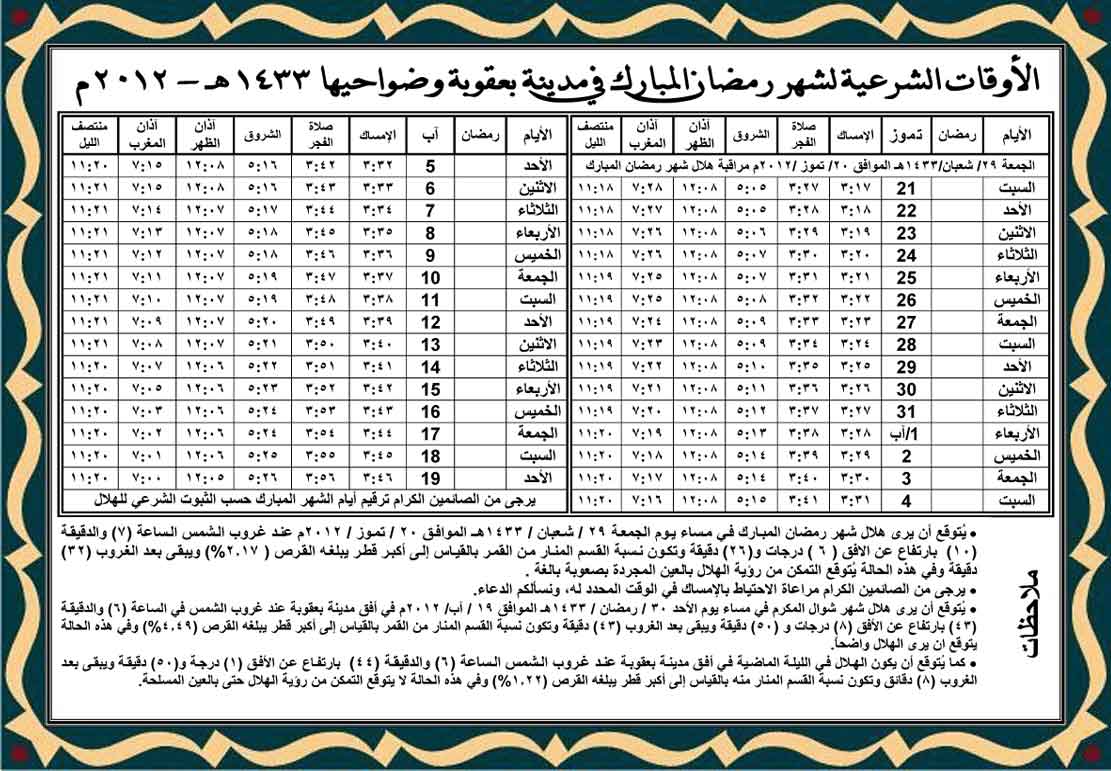 الأوقات الشرعية لشهر رمضان المبارك في مدينة بعقوبة وضواحيها ١٤٣٣هـ – ٢٠١٢م
الأيام رمضان تموز الإمساك صلاة الفجر الشروق آذان الظهر آذان المغرب منتصف الليل
الجمعة ٢٩/ شعبان/١٤٣٣هـ الموافق ٢٠/ تموز /٢٠١٢م مراقبة هلال شهر رمضان المبارك
السبت 21 ٣:١٧ ٣:٢٧ ٥:٠٥ ١٢:٠٨ ٧:٢٨ ١١:١٨
الأحد 22 ٣:١٨ ٣:٢٨ ٥:٠٥ ١٢:٠٨ ٧:٢٧ ١١:١٨
الاثنين 23 ٣:١٩ ٣:٢٩ ٥:٠٦ ١٢:٠٨ ٧:٢٦ ١١:١٨
الثلاثاء 24 ٣:٢٠ ٣:٣٠ ٥:٠٧ ١٢:٠٨ ٧:٢٦ ١١:١٨
الأربعاء 25 ٣:٢١ ٣:٣١ ٥:٠٧ ١٢:٠٨ ٧:٢٥ ١١:١٩
الخميس 26 ٣:٢٢ ٣:٣٢ ٥:٠٨ ١٢:٠٨ ٧:٢٥ ١١:١٩
الجمعة 27 ٣:٢٣ ٣:٣٣ ٥:٠٩ ١٢:٠٨ ٧:٢٤ ١١:١٩
السبت 28 ٣:٢٤ ٣:٣٤ ٥:٠٩ ١٢:٠٨ ٧:٢٣ ١١:١٩
الأحد 29 ٣:٢٥ ٣:٣٥ ٥:١٠ ١٢:٠٨ ٧:٢٢ ١١:١٩
الاثنين 30 ٣:٢٦ ٣:٣٦ ٥:١١ ١٢:٠٨ ٧:٢١ ١١:١٩
الثلاثاء 31 ٣:٢٧ ٣:٣٧ ٥:١٢ ١٢:٠٨ ٧:٢٠ ١١:١٩
الأربعاء 1/آب ٣:٢٨ ٣:٣٨ ٥:١٣ ١٢:٠٨ ٧:١٩ ١١:٢٠
الخميس 2 ٣:٢٩ ٣:٣٩ ٥:١٤ ١٢:٠٨ ٧:١٨ ١١:٢٠
الجمعة 3 ٣:٣٠ ٣:٤٠ ٥:١٤ ١٢:٠٨ ٧:١٧ ١١:٢٠
السبت 4 ٣:٣١ ٣:٤١ ٥:١٥ ١٢:٠٨ ٧:١٦ ١١:٢٠
الأيام رمضان آب الإمساك صلاة الفجر الشروق آذان الظهر آذان المغرب منتصف الليل
الأحد 5 ٣:٣٢ ٣:٤٢ ٥:١٦ ١٢:٠٨ ٧:١٥ ١١:٢٠
الاثنين 6 ٣:٣٣ ٣:٤٣ ٥:١٦ ١٢:٠٨ ٧:١٥ ١١:٢١
الثلاثاء 7 ٣:٣٤ ٣:٤٤ ٥:١٧ ١٢:٠٧ ٧:١٤ ١١:٢١
الأربعاء 8 ٣:٣٥ ٣:٤٥ ٥:١٨ ١٢:٠٧ ٧:١٣ ١١:٢١
الخميس 9 ٣:٣٦ ٣:٤٦ ٥:١٨ ١٢:٠٧ ٧:١٢ ١١:٢١
الجمعة 10 ٣:٣٧ ٣:٤٧ ٥:١٩ ١٢:٠٧ ٧:١١ ١١:٢١
السبت 11 ٣:٣٨ ٣:٤٨ ٥:١٩ ١٢:٠٧ ٧:١٠ ١١:٢١
الأحد 12 ٣:٣٩ ٣:٤٩ ٥:٢٠ ١٢:٠٧ ٧:٠٩ ١١:٢١
الاثنين 13 ٣:٤٠ ٣:٥٠ ٥:٢١ ١٢:٠٧ ٧:٠٨ ١١:٢١
الثلاثاء 14 ٣:٤١ ٣:٥١ ٥:٢٢ ١٢:٠٦ ٧:٠٧ ١١:٢٠
الأربعاء 15 ٣:٤٢ ٣:٥٢ ٥:٢٣ ١٢:٠٦ ٧:٠٥ ١١:٢٠
الخميس 16 ٣:٤٣ ٣:٥٣ ٥:٢٤ ١٢:٠٦ ٧:٠٣ ١١:٢٠
الجمعة 17 ٣:٤٤ ٣:٥٤ ٥:٢٤ ١٢:٠٦ ٧:٠٢ ١١:٢٠
السبت 18 ٣:٤٥ ٣:٥٥ ٥:٢٥ ١٢:٠٦ ٧:٠١ ١١:٢٠
الأحد 19 ٣:٤٦ ٣:٥٦ ٥:٢٦ ١٢:٠٥ ٧:٠٠ ١١:٢٠
يرجى من الصائمين الكرام ترقيم أيام الشهر المبارك حسب الثبوت الشرعي للهلال
ملاحظات
• يُتوقع أن يرى هلال شهر رمضان المبارك في مساء يوم الجمعة ٢٩ / شعبان / ١٤٣٣هـ الموافق ٢٠ / تموز / ٢٠١٢م عند غروب الشمس الساعة (٧) والدقيقة
(١٠) بارتفاع عن الافق (٦) درجات و(٢٦) دقيقة وتكون نسبة القسم المنار من القمر بالقياس إلى أكبر قطر يبلغه القرص (٢.١٧%) ويبقى بعد الغروب (٣٢)
دقيقة وفي هذه الحالة يُتوقع التمكن من رؤية الهلال بالعين المجردة بصعوبة بالغة.
• يرجى من الصائمين الكرام مراعاة الاحتياط بالإمساك في الوقت المحدد له، ونسألكم الدعاء.
• يُتوقع أن يرى هلال شهر شوال المكرم في مساء يوم الأحد ٣٠ / رمضان / ١٤٣٣هـ الموافق ١٩ / آب/ ٢٠١٢م في أفق مدينة بعقوبة عند غروب الشمس في الساعة (٦) والدقيقة
(٤٣) بارتفاع عن الأفق (٨) درجات و (٥٠) دقيقة ويبقى بعد الغروب (٤٣) دقيقة وتكون نسبة القسم المنار من القمر بالقياس إلى أكبر قطر يبلغه القرص (٤.٤٩%) وفي هذه الحالة
يتوقع ان يرى الهلال واضحاً.
• كما يُتوقع أن يكون الهلال في الليلة الماضية في أفق مدينة بعقوبة عند غروب الشمس الساعة (٦) والدقيقة (٤٤) بارتفاع عن الأفق (١) درجة و(٥٠) دقيقة ويبقى بعد
الغروب (٨) دقائق وتكون نسبة القسم المنار منه بالقياس إلى أكبر قطر يبلغه القرص (١.٢٢%) وفي هذه الحالة لا يتوقع التمكن من رؤية الهلال حتى بالعين المسلحة.